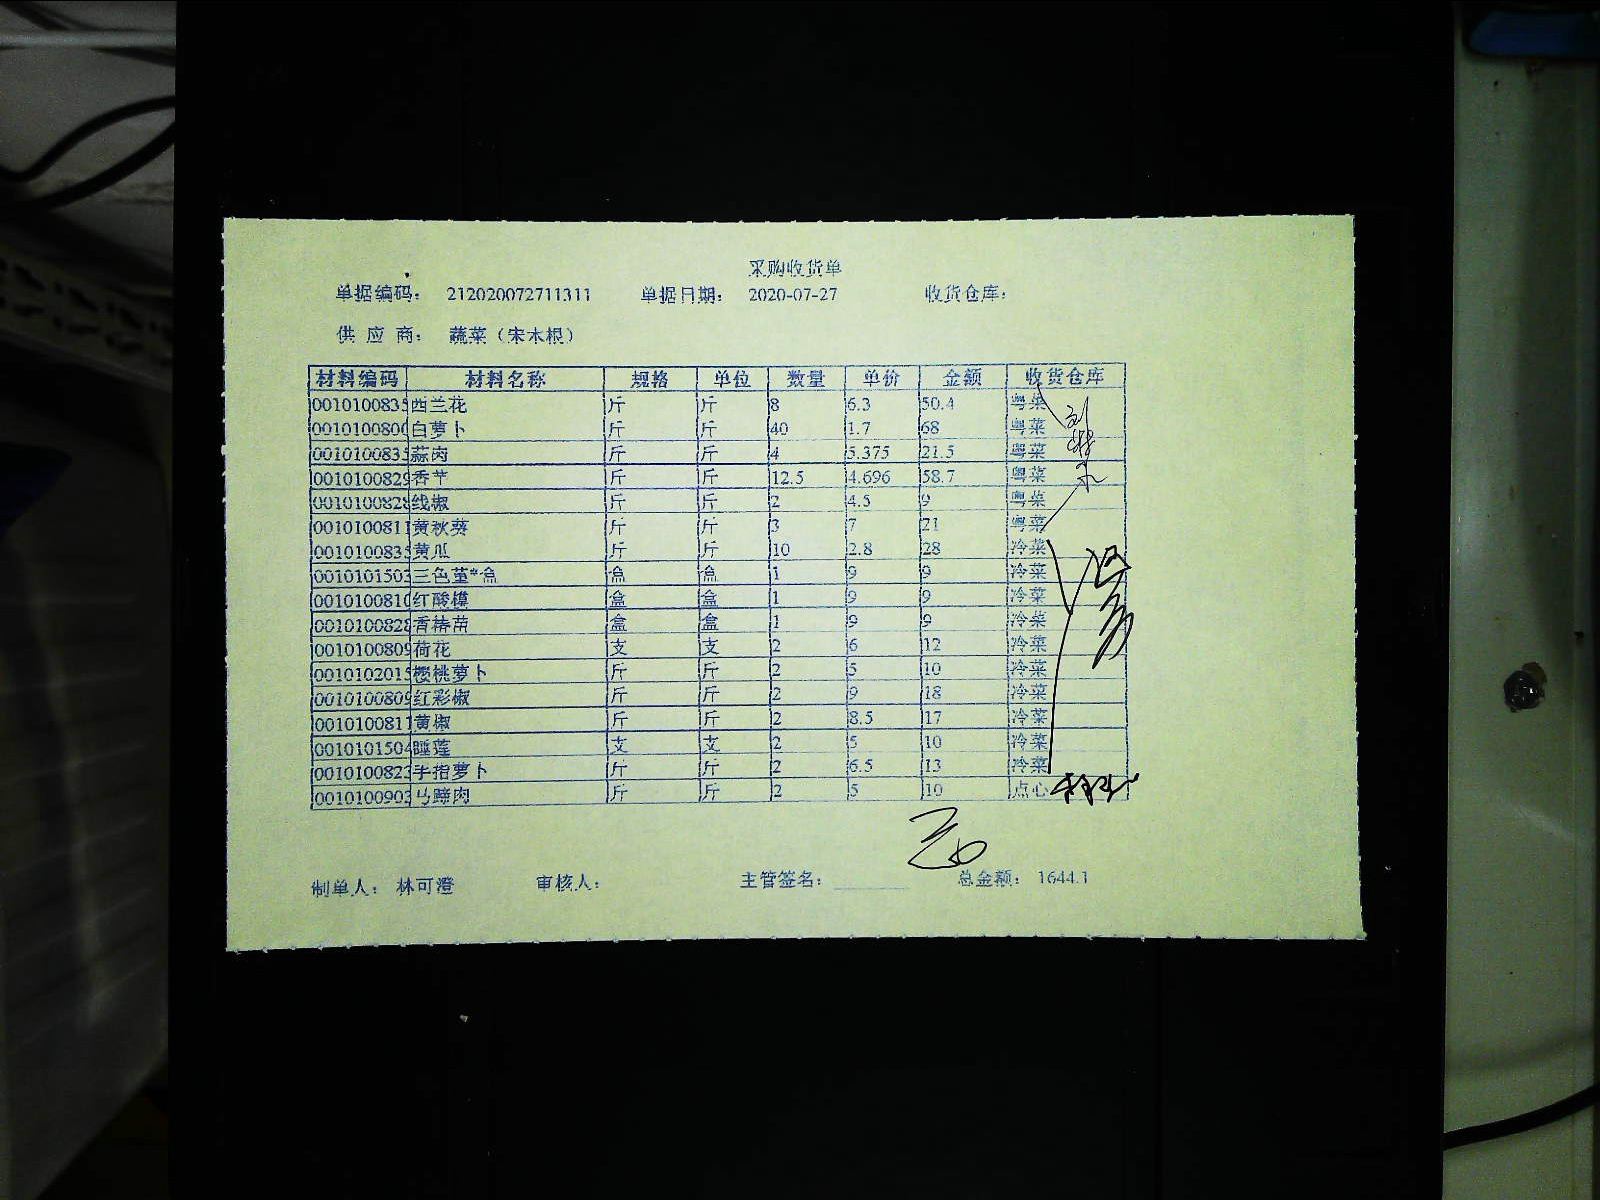 采购收货单
单据编码： 212020072711311 单据日期： 2020-07-27 收货仓库：
供 应 商： 蔬菜（宋木根）
材料编码 材料名称 规格 单位 数量 单价 金额 收货仓库
0010100835 西兰花 斤 斤 8 6.3 50.4 粤菜
001010080 白萝卜 斤 斤 40 1.7 68 粤菜
001010083 蒜肉 斤 斤 4 5.375 21.5 粤菜
0010100829 香芹 斤 斤 12.5 4.696 58.7 粤菜
0010100828 线椒 斤 斤 2 4.5 9 粤菜
0010100811 黄秋葵 斤 斤 3 7 21 粤菜
0010100835 黄瓜 斤 斤 10 2.8 28 冷菜
001010150 三色堇*盒 盒 盒 1 9 9 冷菜
001010081 红酸模 盒 盒 1 9 9 冷菜
0010100828 香椿苗 盒 盒 1 9 9 冷菜
0010100809 荷花 支 支 2 6 12 冷菜
0010102015 樱桃萝卜 斤 斤 2 5 10 冷菜
0010100809 红彩椒 斤 斤 2 9 18 冷菜
0010100811 黄椒 斤 斤 2 8.5 17 冷菜
0010101504 睡莲 支 支 2 5 10 冷菜
001010082 手指萝卜 斤 斤 2 6.5 13 冷菜
001010090 马蹄肉 斤 斤 2 5 10 点心
制单人： 林可澄 审核人： 主管签名： 总金额： 1644.1